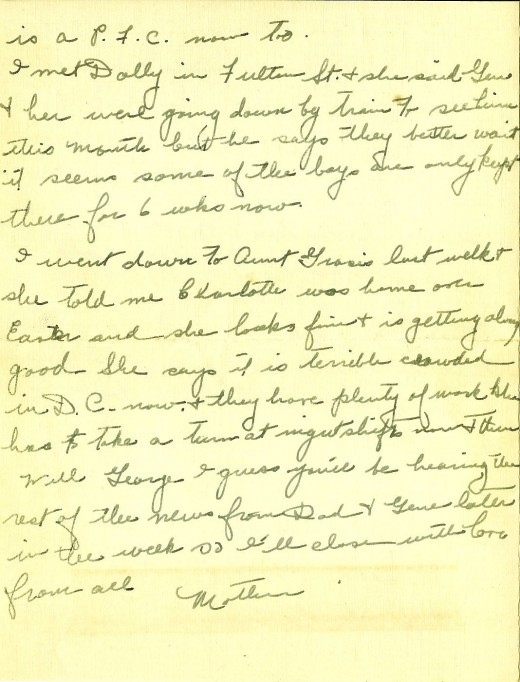 is a P.F.C. now too.
I met Dolly in Fulton St. & she said Gene
& her were going down by train to see him
this month but he says they better wait
it seems some of the boys are only kept
there for 6 wks now.
I went down to Aunt Grasis last week &
she told me Charlotte was home over
Easter and she looks fine & is getting along
good. She says it is terrible crowded
in D.C. now. & they have plenty of work she
has to take a turn at night shift now & then
Well George I guess you'll be hearing the
rest of the news from Dad & Gene later
in the week so I'll close with love
from all Mother